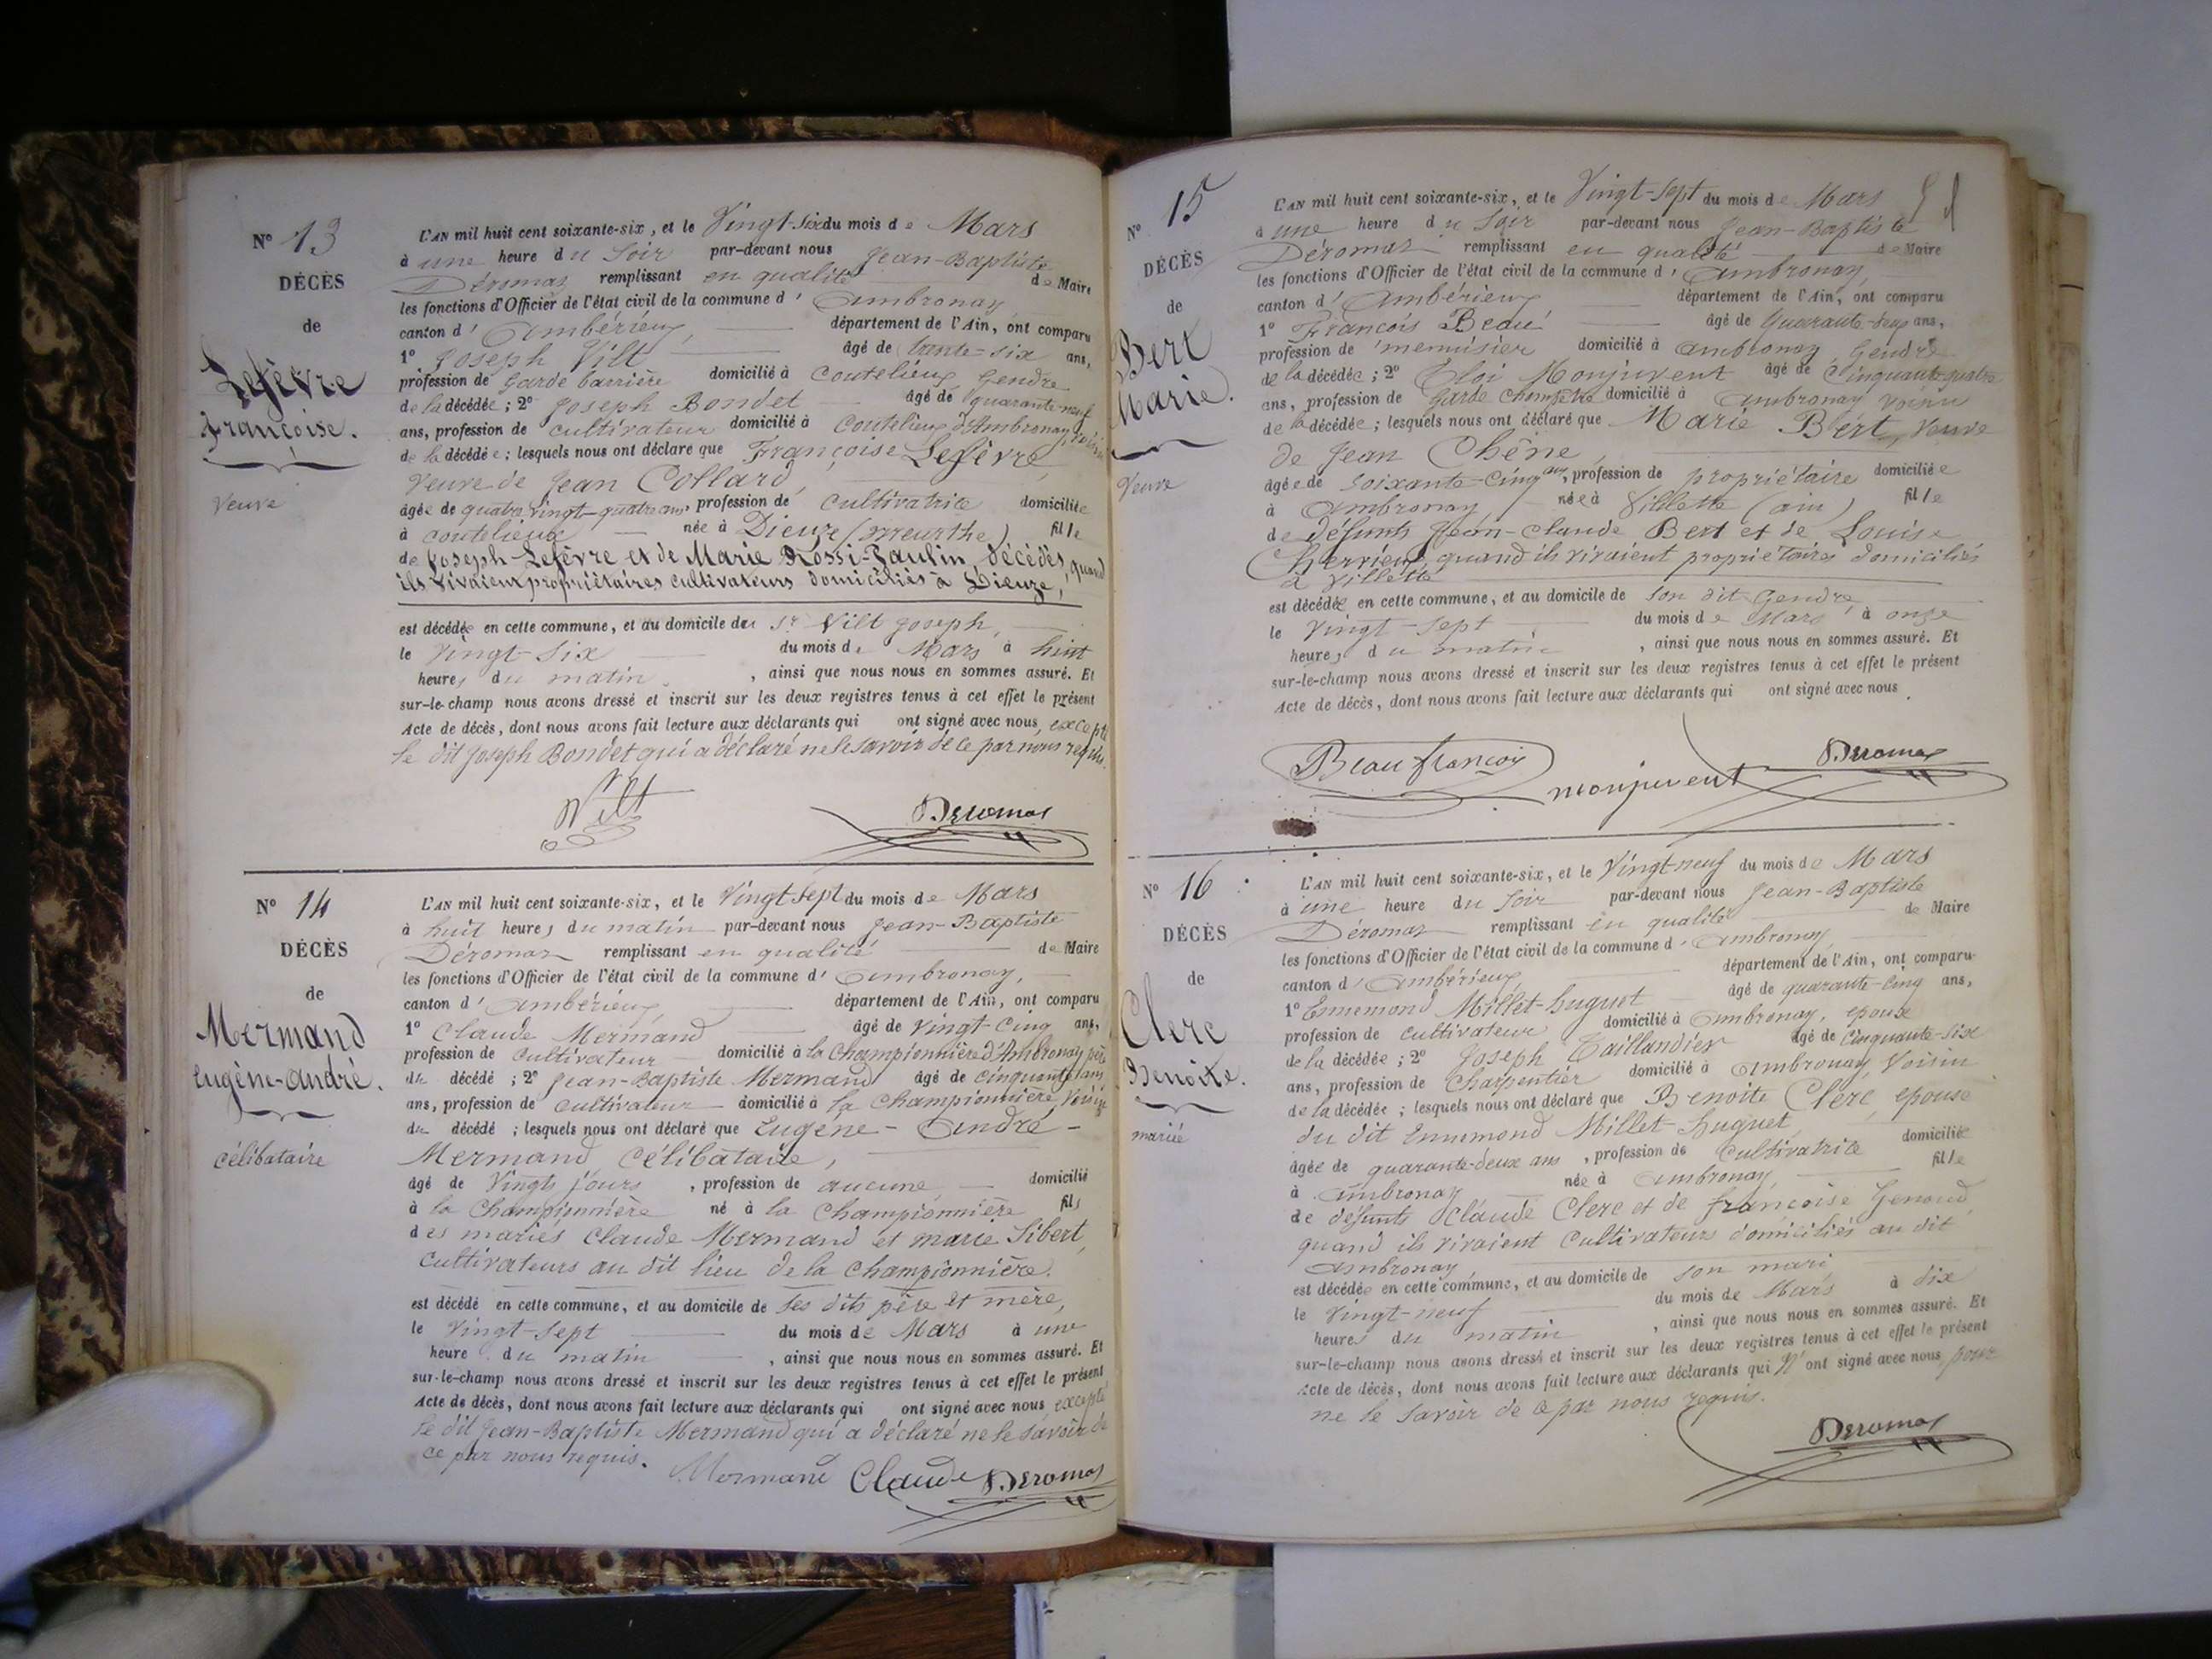 Nº 13
DÉCÈS
de
Lefèvre
Françoise.
Veuve
L'AN mil huit cent soixante-six, et le Vingt-Six du mois de Mars
à une heure du Soir par-devant nous Jean-Baptiste
Déromas remplissant en qualité de Maire
les fonctions d'Officier de l'état civil de la commune d'Ambronay
canton d'Ambérieux, département de l'Ain, ont comparu
1º Joseph Vilt âgé de trente-six ans,
profession de Garde barrière domicilié à Coutelieux Gendre
de la décédée; 2º Joseph Bondet âgé de quarante-neuf
ans, profession de cultivateur domicilié à Coutelieux d'Ambronay, voisin
de la décédée; lesquels nous ont déclaré que Françoise Lefèvre
Veuve de Jean Collard,
âgée de quatre vingt-quatre ans, profession de Cultivatrice domiciliée
à coutelieux née à Dieuze (Meurthe) fille
de Joseph Lefèvre et de Marie Rossi-Paulin, décédés, quand
ils vivaient propriétaires cultivateurs domiciliés à Dieuze,
est décédée en cette commune, et au domicile du Sr Vilt Joseph,
le Vingt-Six du mois de Mars à huit
heures du matin, ainsi que nous nous en sommes assuré. Et
sur-le-champ nous avons dressé et inscrit sur les deux registres tenus à cet effet le présent
Acte de décès, dont nous avons fait lecture aux déclarants qui ont signé avec nous, excepté
le dit Joseph Bondet qui a déclaré ne le savoir de ce par nous requis.
Vilt Deromas
Nº 14
DÉCÈS
de
Mermand
Eugène-André.
Célibataire
L'AN mil huit cent soixante-six, et le Vingt Sept du mois de Mars
à huit heures du matin par-devant nous Jean-Baptiste
Déromas remplissant en qualité de Maire
les fonctions d'Officier de l'état civil de la commune d'Ambronay,
canton d'Ambérieux, département de l'Ain, ont comparu
1º Claude Mermand âgé de Vingt-Cinq ans,
profession de Cultivateur domicilié à la Championnière d'Ambronay père
du décédé; 2º Jean-Baptiste Mermand âgé de cinquante ans
ans, profession de Cultivateur domicilié à la Championnière, Voisin
du décédé; lesquels nous ont déclaré que Eugène-André-
Mermand Célibataire,
âgé de Vingts jours, profession de aucune domicilié
à la Championnière né à la Championnière fils
des mariés Claude Mermand et marie Sibert,
Cultivateurs au dit lieu de la Championnière.
est décédé en cette commune, et au domicile de Ses dits père et mère,
le Vingt-Sept du mois de Mars à une
heure du matin, ainsi que nous nous en sommes assuré. Et
sur-le-champ nous avons dressé et inscrit sur les deux registres tenus à cet effet le présent
Acte de décès, dont nous avons fait lecture aux déclarants qui ont signé avec nous excepté
le dit Jean-Baptiste Mermand qui a déclaré ne le savoir de
ce par nous requis. Mermand Claude Deromas
Nº 15
DÉCÈS
de
Bert
Marie.
Veuve
L'AN mil huit cent soixante-six, et le Vingt-Sept du mois de Mars
à une heure du Soir par-devant nous Jean-Baptiste
Déromas remplissant en qualité de Maire
les fonctions d'Officier de l'état civil de la commune d'Ambronay,
canton d'Ambérieux département de l'Ain, ont comparu
1º François Beau âgé de Quarante-deux ans,
profession de menuisier domicilié à Ambronay Gendre
de la décédée; 2º Eloi Monjuvent âgé de Cinquante-quatre
ans, profession de Garde Champêtre domicilié à Ambronay voisin
de la décédée; lesquels nous ont déclaré que Marie Bert, Veuve
de Jean Chêne,
âgée de soixante-cinq ans, profession de propriétaire domiciliée
à Ambronay, née à Villette (ain) fille
de défunts Jean-Claude Bert et de Louise
Chervieux, quand ils vivaient propriétaires domiciliés
à Villette
est décédée en cette commune, et au domicile de son dit Gendre
le Vingt-Sept du mois de Mars à onze
heures du matin, ainsi que nous nous en sommes assuré. Et
sur-le-champ nous avons dressé et inscrit sur les deux registres tenus à cet effet le présent
Acte de décès, dont nous avons fait lecture aux déclarants qui ont signé avec nous.
Beau françois monjuvent Deromas
Nº 16
DÉCÈS
de
Clerc
Benoite.
mariée
L'AN mil huit cent soixante-six, et le Vingt-neuf du mois de Mars
à une heure du Soir par-devant nous Jean-Baptiste
Déromas remplissant en qualité de Maire
les fonctions d'Officier de l'état civil de la commune d'Ambronay
canton d'Ambérieux département de l'Ain, ont comparu
1º Ennemond Millet-huguet âgé de quarante-cinq ans,
profession de cultivateur domicilié à Ambronay, époux
de la décédée; 2º Joseph Taillandier âgé de Cinquante-Six
ans, profession de Charpentier domicilié à Ambronay Voisin
de la décédée; lesquels nous ont déclaré que Benoite Clerc, épouse
du dit Ennemond Millet-huguet,
âgée de quarante-deux ans, profession de Cultivatrice domiciliée
à Ambronay née à Ambronay, fille
de défunts Claude Clerc et de françoise Genoud
quand ils vivaient Cultivateurs domiciliés au dit
Ambronay
est décédée en cette commune, et au domicile de son mari
le Vingt-neuf du mois de Mars à dix
heures du matin, ainsi que nous nous en sommes assuré. Et
sur-le-champ nous avons dressé et inscrit sur les deux registres tenus à cet effet le présent
Acte de décès, dont nous avons fait lecture aux déclarants qui N'ont signé avec nous pour
ne le savoir de ce par nous requis.
Deromas